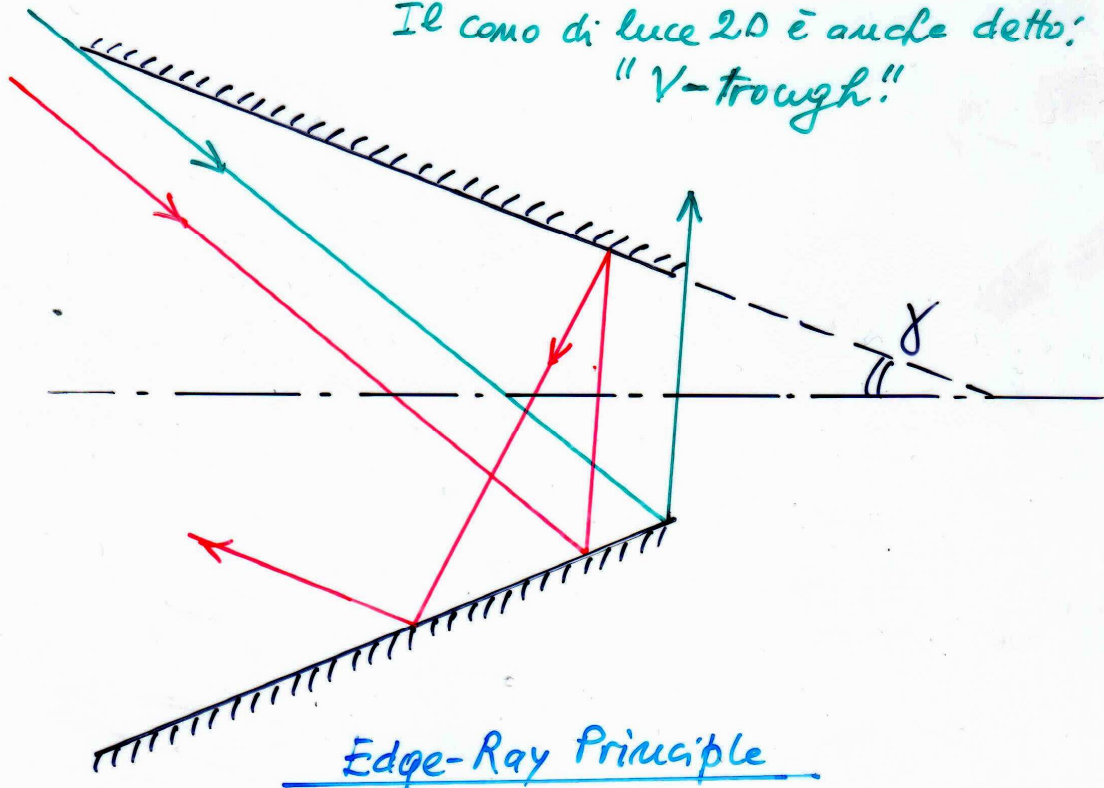 Il cono di luce 2D è anche detto:
"V-trough".
γ
Edge-Ray Principle